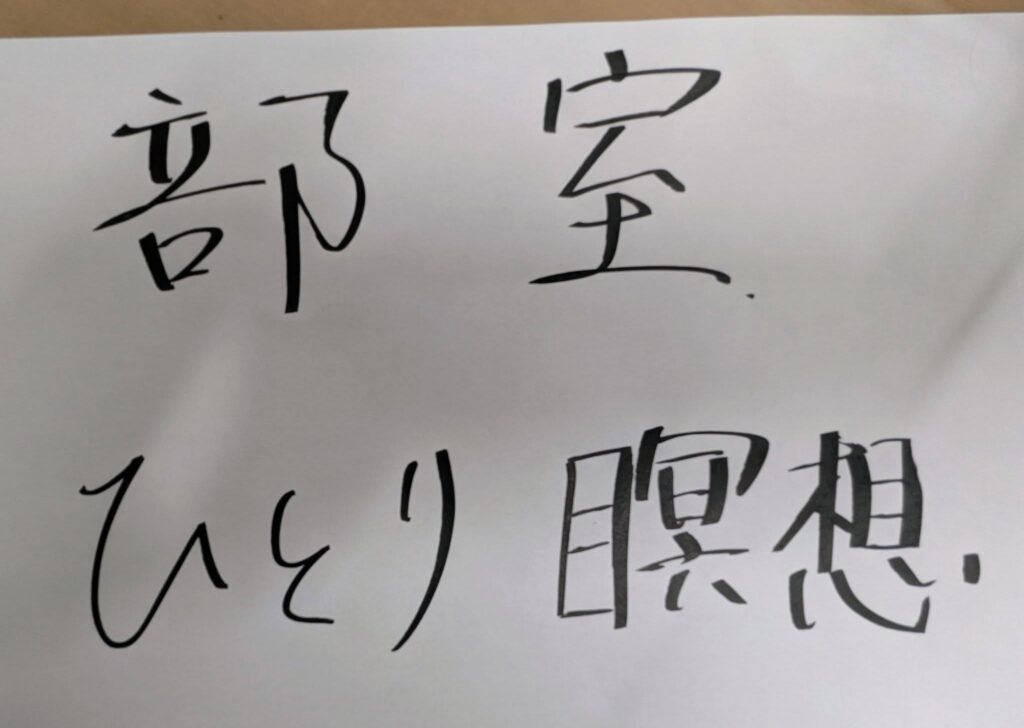 部室
ひとり瞑想